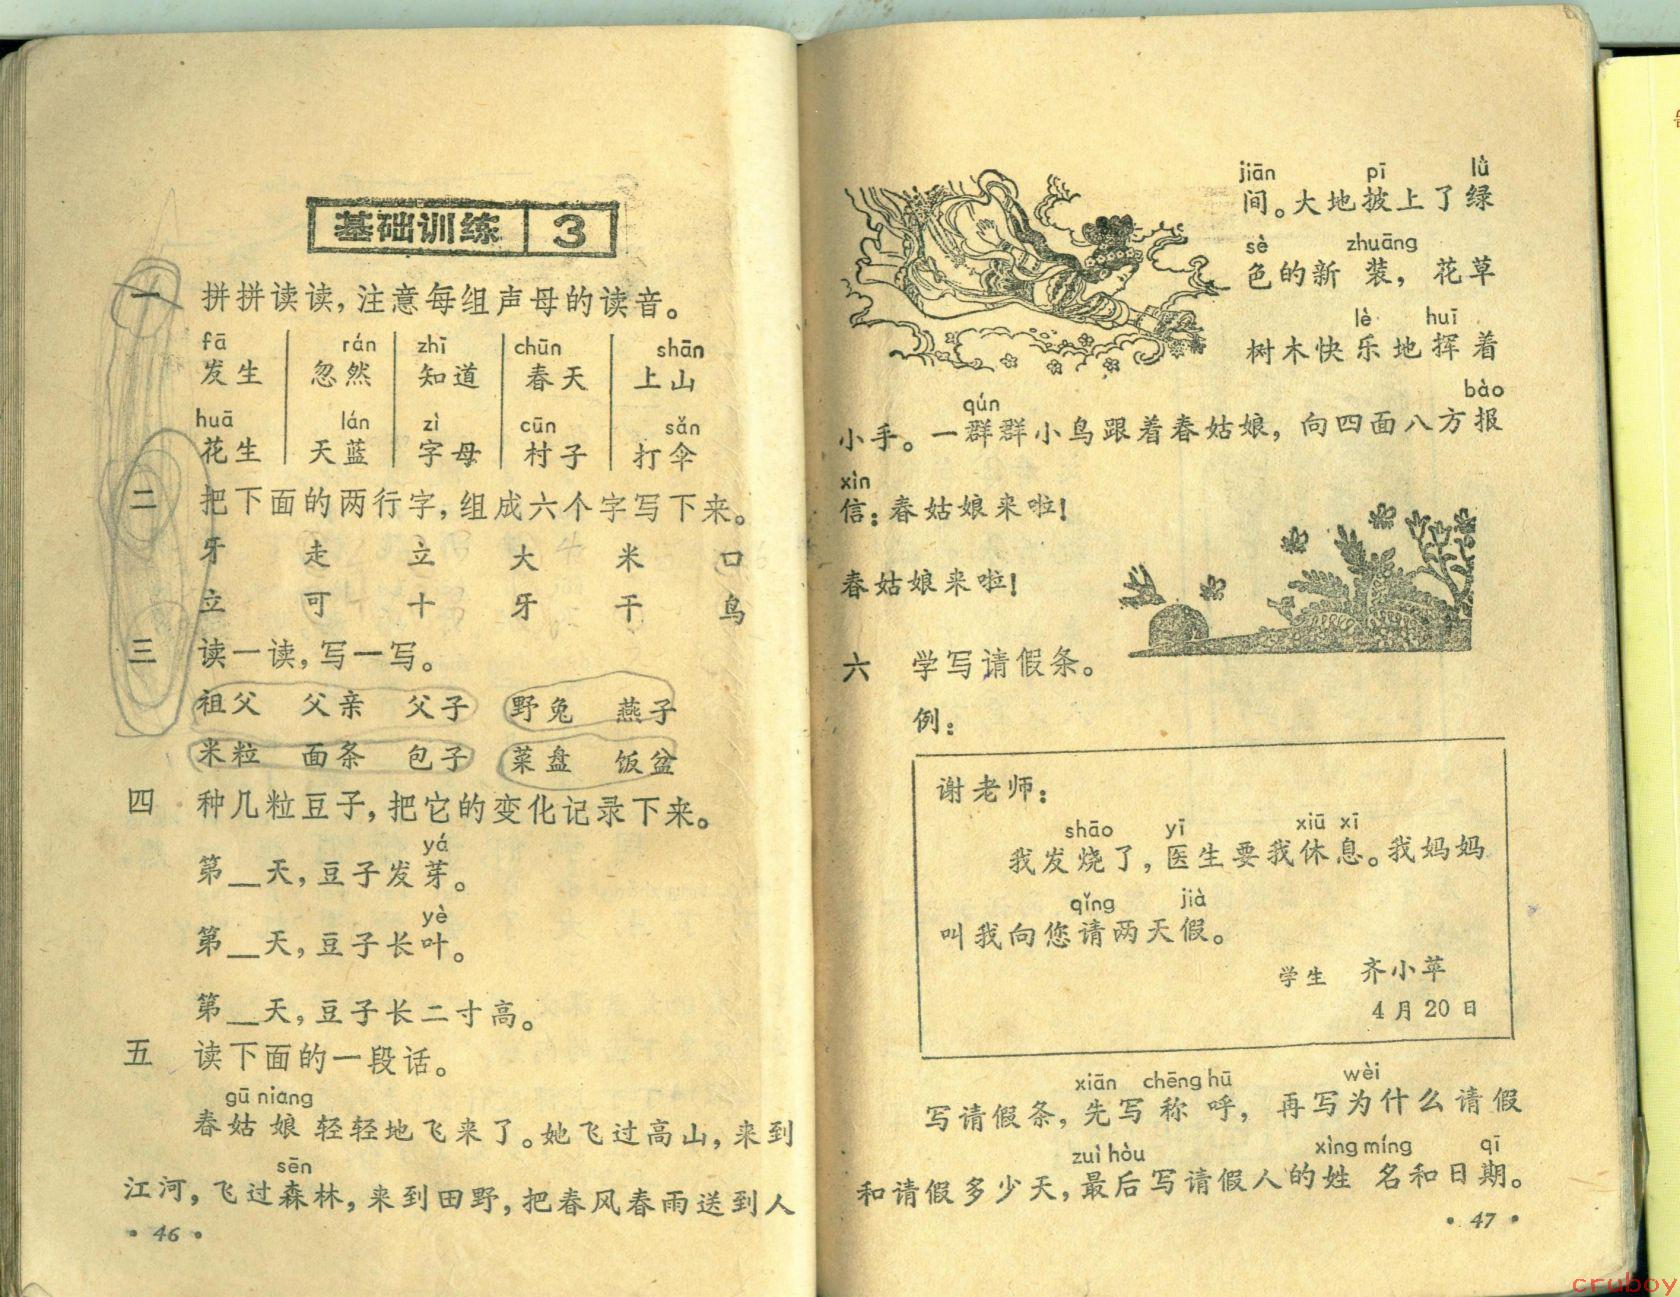 基础训练 3
一 拼拼读读，注意每组声母的读音。
fā rán zhī chūn shān
发生 忽然 知道 春天 上山
huā lán zì cūn sǎn
花生 天蓝 字母 村子 打伞
二 把下面的两行字，组成六个字写下来。
牙 走 立 大 米 口
立 可 十 牙 干 鸟
三 读一读，写一写。
祖父 父亲 父子 野兔 燕子
米粒 面条 包子 菜盘 饭盆
四 种几粒豆子，把它的变化记录下来。
yá
第__天，豆子发芽。
yè
第__天，豆子长叶。
第__天，豆子长二寸高。
五 读下面的一段话。
gū niang
春姑娘轻轻地飞来了。她飞过高山，来到
sēn
江河，飞过森林，来到田野，把春风春雨送到人
· 46 ·
jiān pī lǜ
间。大地披上了绿
sè zhuāng
色的新装，花草
lè huī
树木快乐地挥着
qún bào
小手。一群群小鸟跟着春姑娘，向四面八方报
xìn
信：春姑娘来啦！
春姑娘来啦！
六 学写请假条。
例：
谢老师：
shāo yī xiū xī
我发烧了，医生要我休息。我妈妈
qǐng jià
叫我向您请两天假。
学生 齐小苹
4月20日
xiān chēng hū wèi
写请假条，先写称呼，再写为什么请假
zuì hòu xìng míng qī
和请假多少天，最后写请假人的姓名和日期。
· 47 ·
cruboy